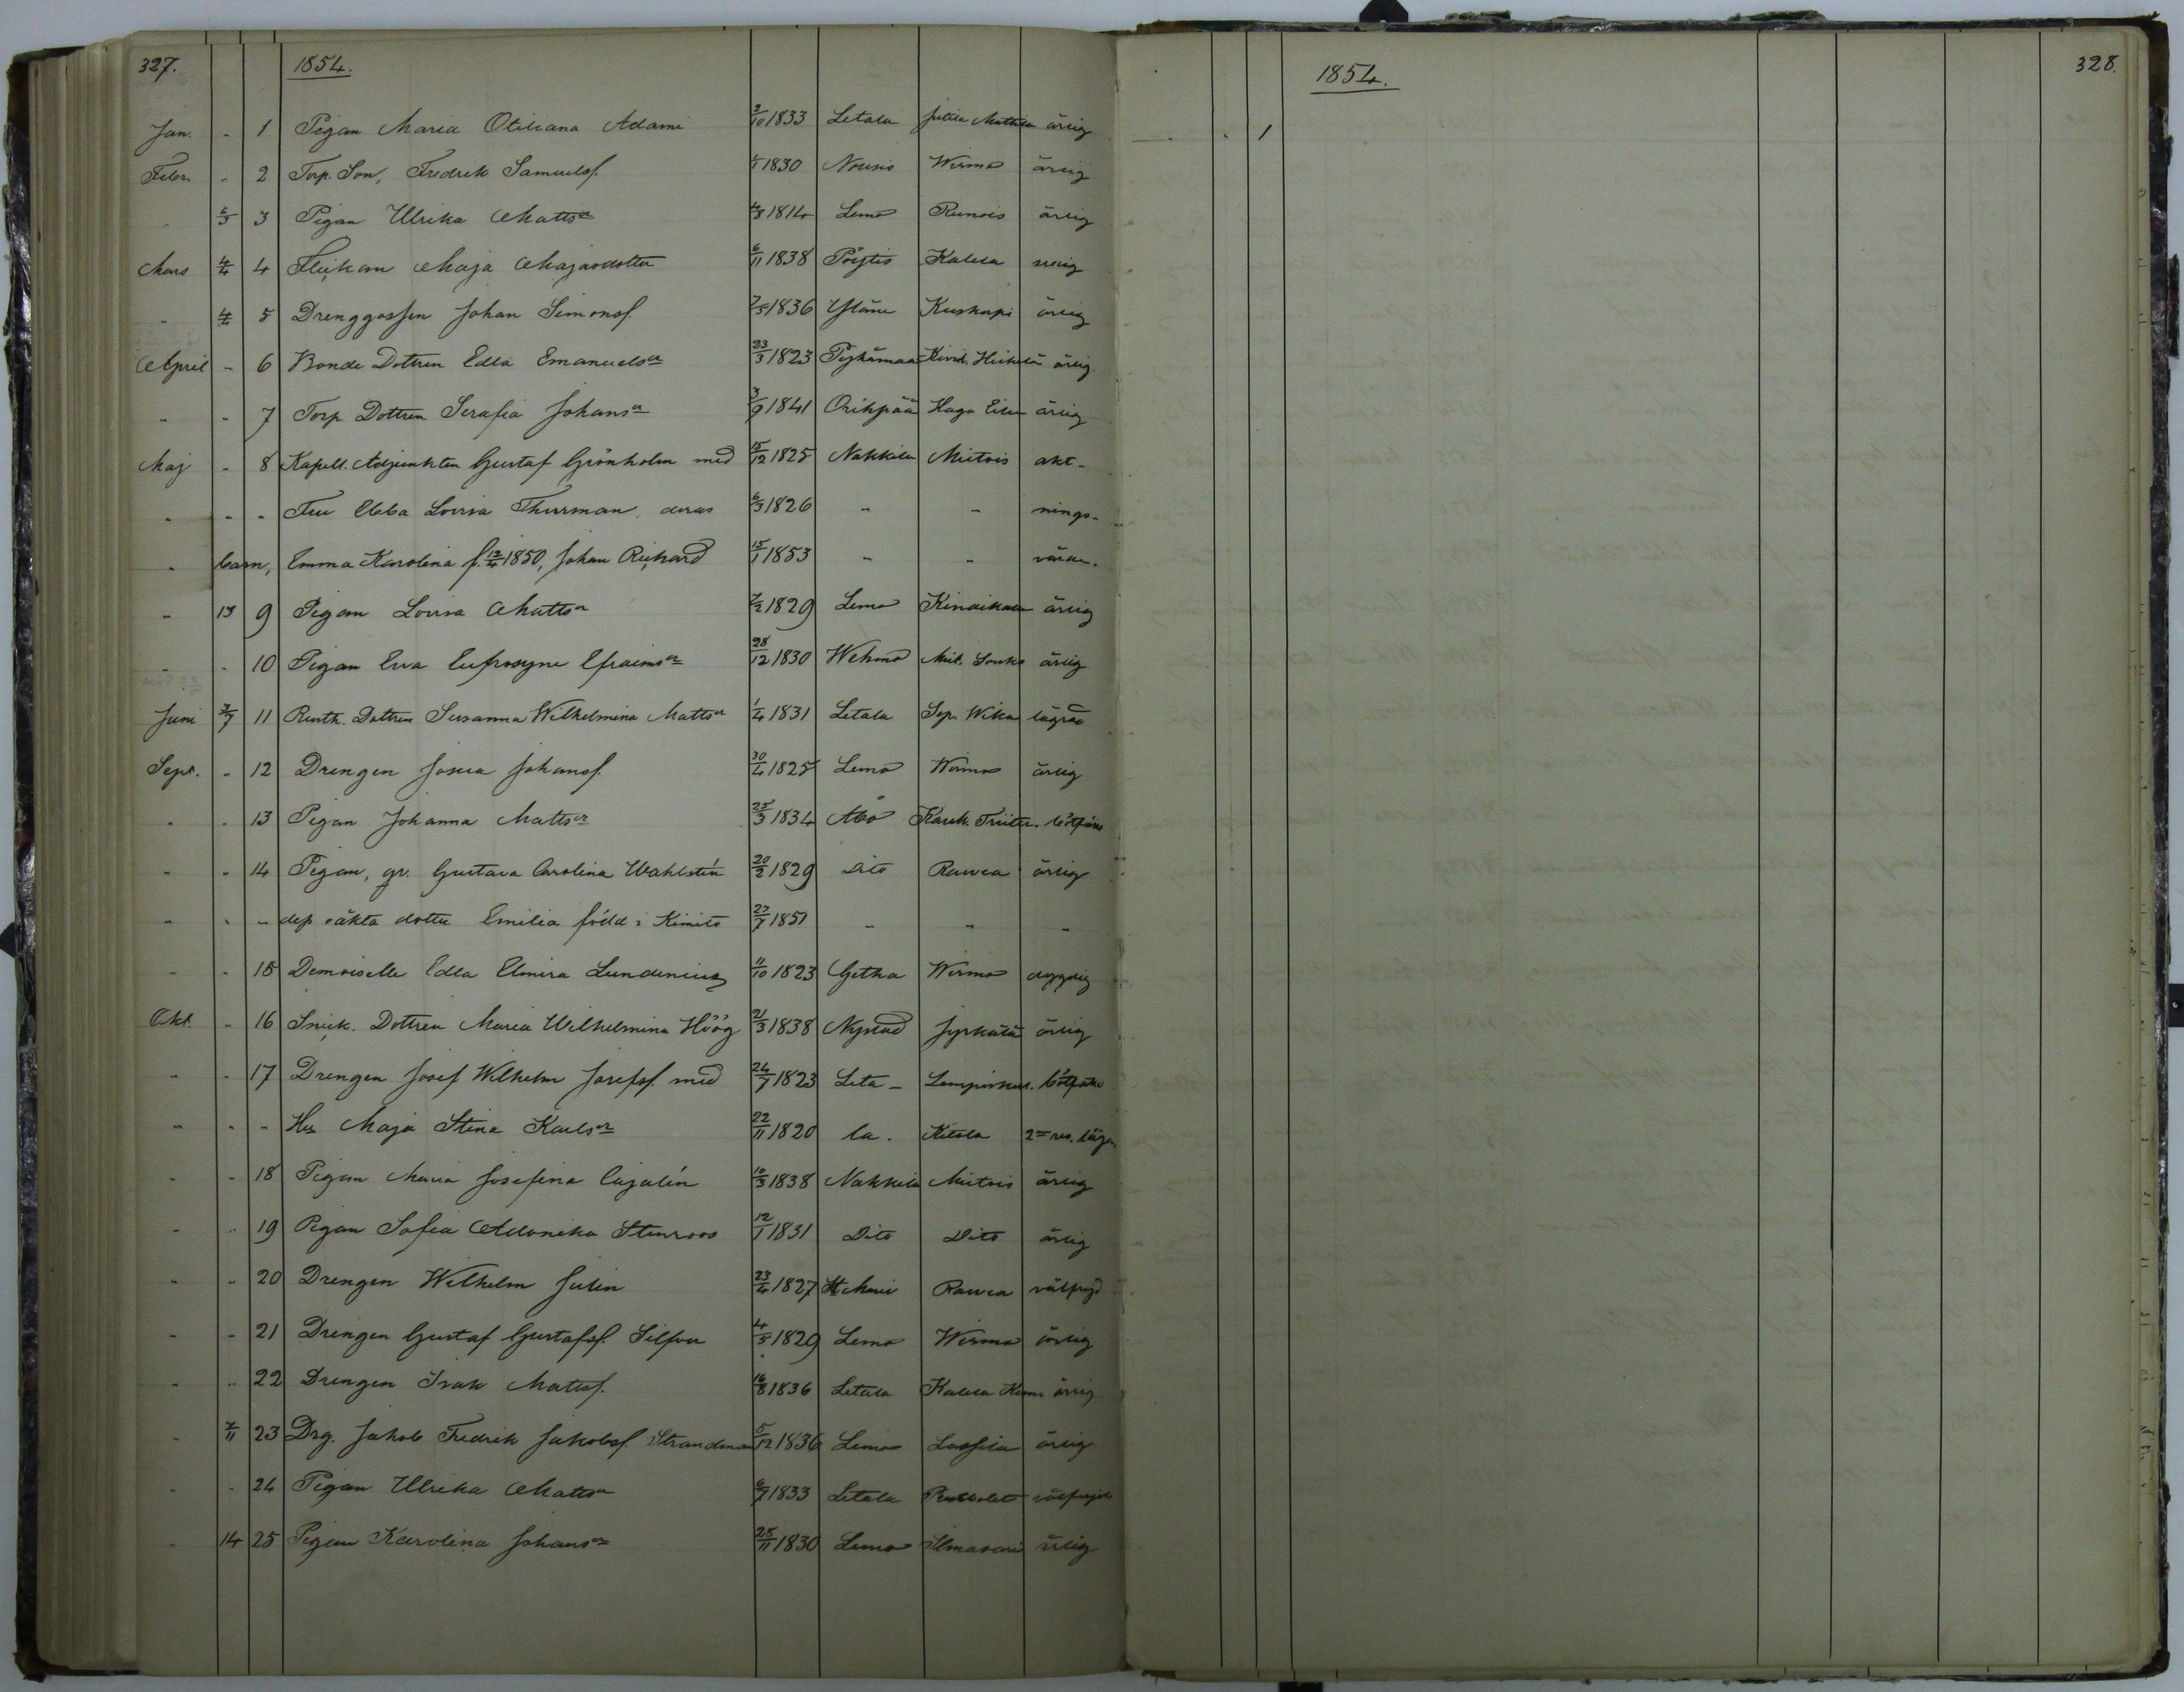 327. 1854.
Jan. - 1 Pigan Maria Otiliana Adami 3/10 1833 Letala Mattila ärlig
Febr. - 2 Torp. Son, Fredrik Samuelsf. 1830 Nousis Wirmo ärlig
" 3 Pigan Ulrika Matts:r 1814 Lemo Runois ärlig
Mars 4/4 4 Flickan Maja Majasdotter 6/11 1838 Pöytis Kalela
" 5 Drenggossen Johan Simonsf. 7/5 1836 Yläne Kuskapi ärlig
April - 6 Bonde Dottren Edla Emanuels:r 23/3 1823 Pyhämaa Heikilä ärlig.
" - 7 Torp Dottren Serafia Johans:r 3/9 1841 Orihpää Haga ärlig
Maj - 8 Kapell. Adjunkten Gustaf Grönholm med 15/12 1825 Nakkila Mietois akt-
" - - Fru Ebba Lovisa Thurman, deras 6/3 1826 - - nings-
" barn, Emma Karolina f. 12/4 1850, Johan Rickard 15/1 1853 - - värda.
" 13 9 Pigan Lovisa Matts:r 7/2 1829 Lemo Kinaikala ärlig
" - 10 Pigan Eva Eufrosyne Efraims:r 28/12 1830 Wehmo Miet. ärlig
Juni 3/7 11 Rusth. Dottren Susanna Wilhelmina Matts:r 1/4 1831 Letala Sep. Wika lägrad
Sept. - 12 Drengen Josua Johansf. 30/4 1825 Lemo Wirmo ärlig
" - 13 Pigan Johanna Matts:r 25/3 1834 Åbo Kark.
" - 14 Pigan, gr. Gustava Carolina Wahlstén 20/2 1829 Dito Rauvea ärlig
" - - dess oäkta dotter Emilia född i Kimito 27/7 1851 - - -
" - 15 Demoiselle Edla Elmira Lundenius 11/10 1823 Getha Wirmo dygdig
Okt. - 16 Snick. Dottren Maria Wilhelmina Höög 21/3 1838 Nystad Jyrkälä ärlig
" - 17 Drengen Josef Wilhelm Josefsf. med 24/7 1823 Leta-
" - - Hu Maja Stina Karls:r 22/11 1820 la.
" - 18 Pigan Maria Josefina Cajalén 10/3 1838 Nakkila Mietois ärlig
" - 19 Pigan Sofia Adamika Stenroos 12/1 1831 Dito Dito ärlig
" - 20 Drengen Wilhelm Julin 23/4 1827 St Marie Rauvea välfrejd
" - 21 Drengen Gustaf Gustafsf. Silfver 4/5 1829 Lemo Wirmo ärlig
" - 22 Drengen Isak Mattsf. 16/8 1836 Letala Kalela ärlig
" 2/11 23 Drg. Jakob Fredrik Jakobsf. Strandman 5/12 1836 Lemo Lassila ärlig
" - 24 Pigan Ulrika Matts:r 6/7 1833 Letala välfrejd
" 14 25 Pigan Karolina Johans:r 28/11 1830 Lemo ärlig
1854. 328.
- - 1